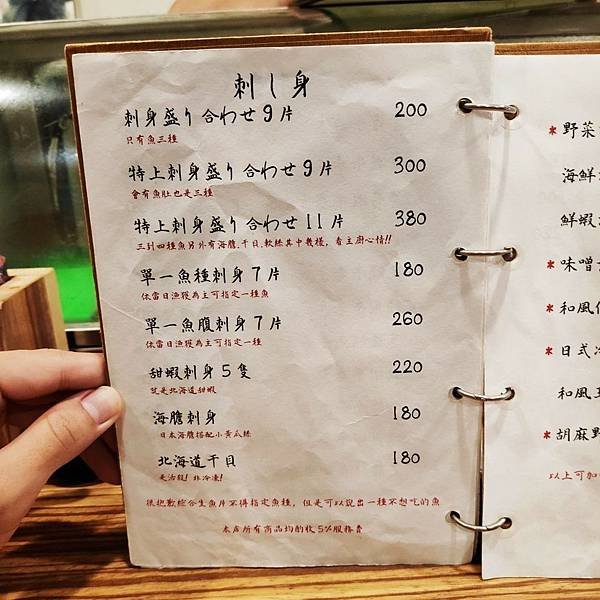 刺し身
刺身盛り合わせ9片 200
只有魚三種
特上刺身盛り合わせ9片 300
會有魚肚也是三種
特上刺身盛り合わせ11片 380
三到四種魚另外有海膽.干貝.軟絲其中幾樣，看主廚心情!!
單一魚種刺身7片 180
依當日漁獲為主可指定一種魚
單一魚腹刺身7片 260
依當日漁獲為主可指定一種
甜蝦刺身5隻 220
就是北海道甜蝦
海膽刺身 180
日本海膽搭配小黃瓜絲
北海道干貝 180
是活殺! 非冷凍!
很抱歉綜合生魚片不得指定魚種，但是可以說出一種不想吃的魚
本店所有商品均酌收5%服務費
*野菜
海鮮
鮮蝦
*味噌
和風
*日式
和風
*胡麻野
以上可加